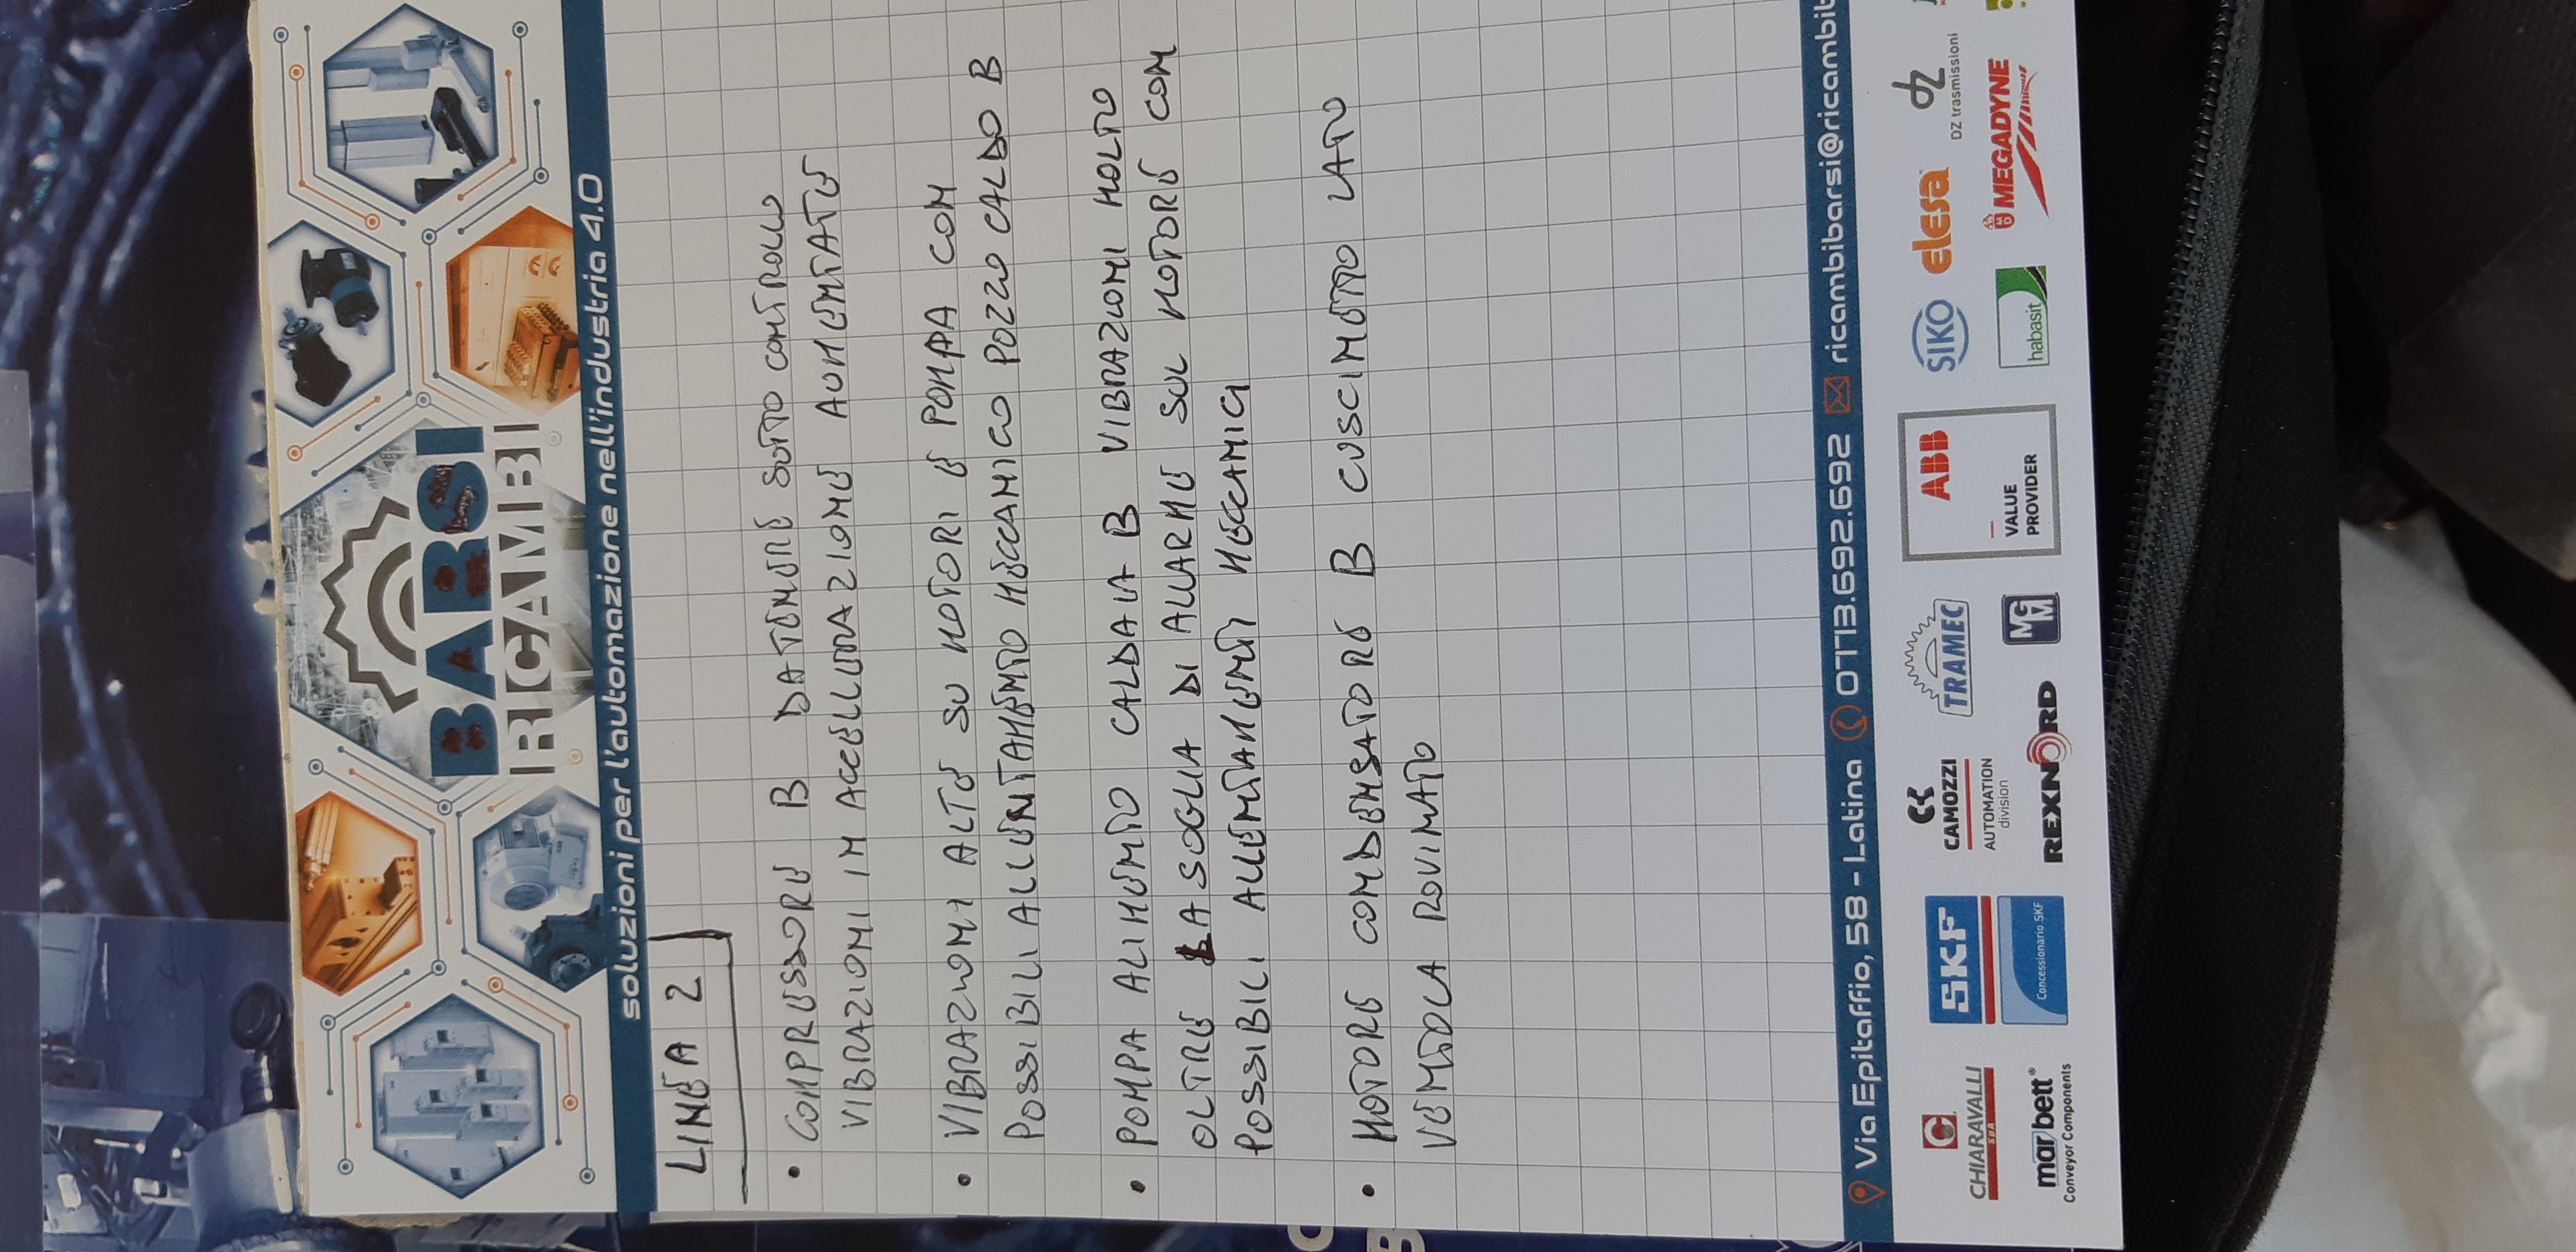 BARSI
RICAMBI
soluzioni per l'automazione nell'industria 4.0
LINEA 2
• COMPRESSORE B DA TENERE SOTTO CONTROLLO
VIBRAZIONI IN ACCELLERAZIONE AUMENTATE
• VIBRAZIONI ALTE SU MOTORI E POMPA CON
POSSIBILI ALLENTAMENTO MECCANICO POZZO CALDO B
• POMPA ALIMENTO CALDAIA B VIBRAZIONI MOLTO
OLTRE LA SOGLIA DI ALLARME SUL MOTORE CON
POSSIBILI ALLENTAMENTI MECCANICI
• MOTORE CONDENSATORE B CUSCINETTO LATO
VENTOLA ROVINATO
Via Epitaffio, 58 - Latina 0773.692.692 ricambibarsi@ricambib
CHIARAVALLI
SpA
SKF
CAMOZZI
AUTOMATION
division
TRAMEC
ABB
SIKO
elesa
DZ trasmissioni
marbett®
Conveyor Components
Concessionario SKF
REXNORD
MGM
VALUE
PROVIDER
habasit
MEGADYNE